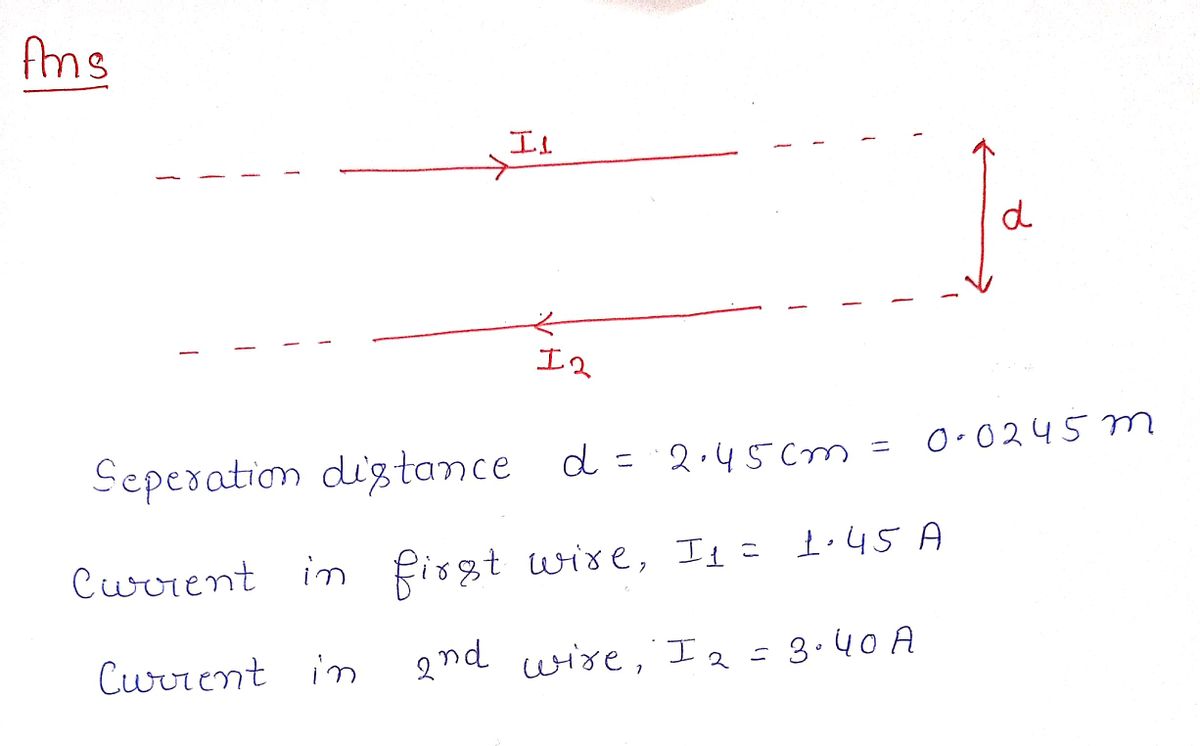 Ans
I1
d
I2
Seperation distance d = 2.45 cm = 0.0245 m
Current in first wire, I1 = 1.45 A
Current in 2nd wire, I2 = 3.40 A